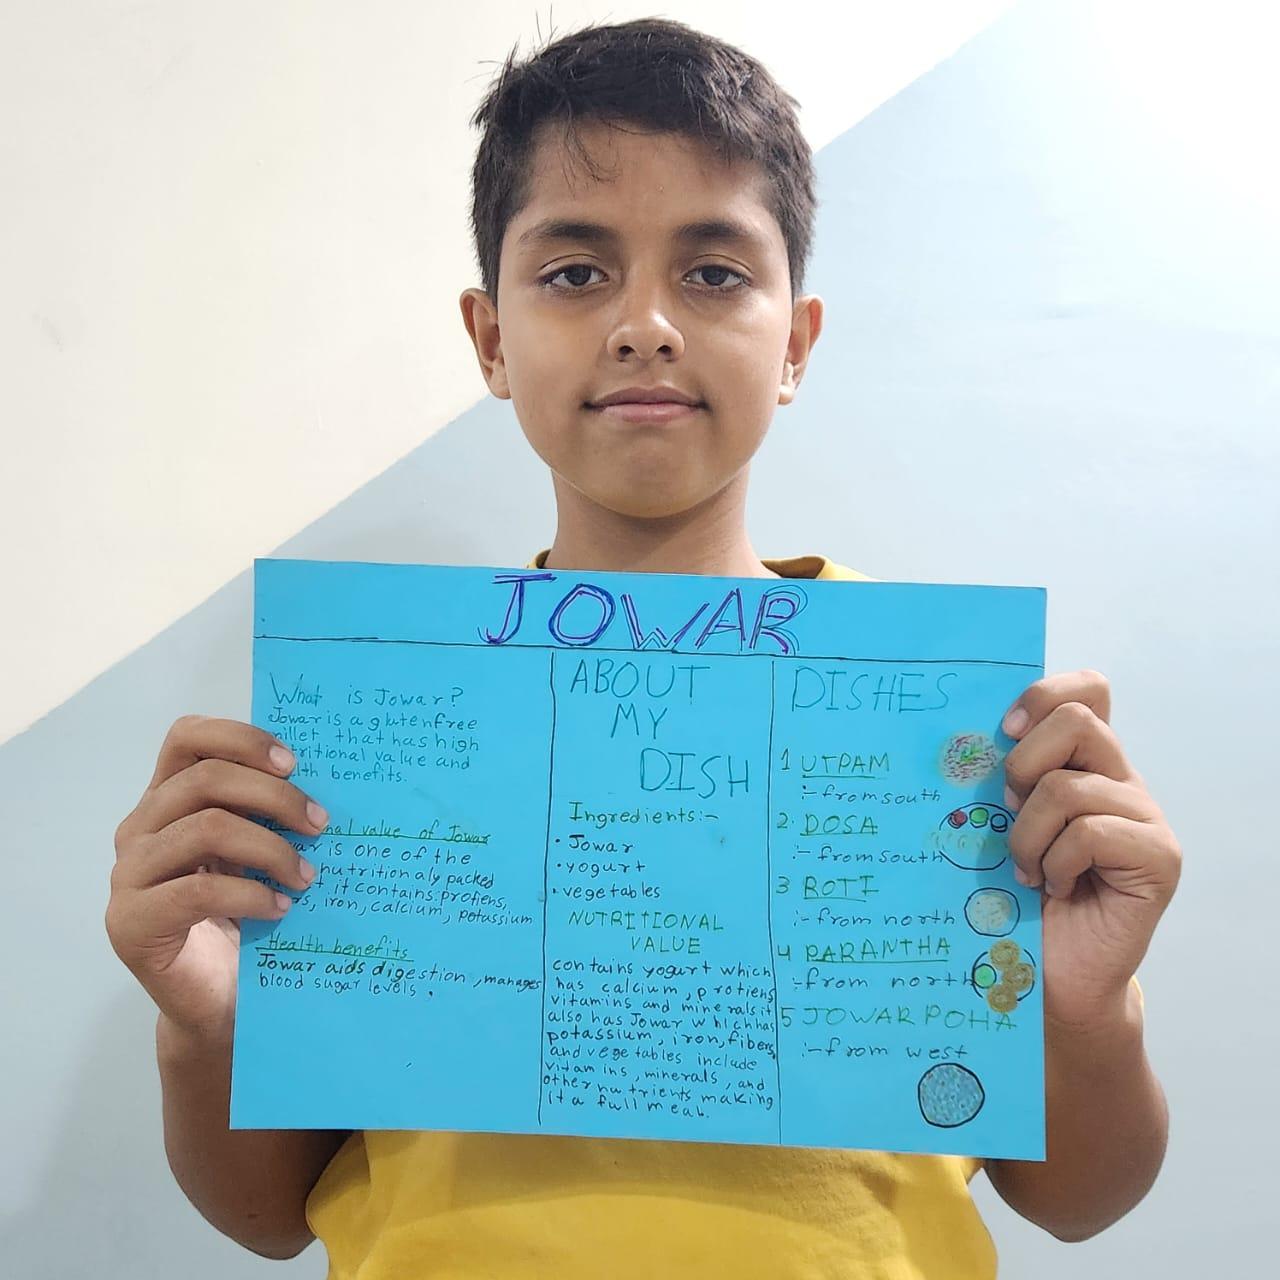 JOWAR
What is Jowar?
Jowar is a gluten free
millet that has high
nutritional value and
health benefits.
nal value of Jowar
is one of the
nutritionaly packed
it contains protiens,
iron, calcium, potassium
Health benefits
Jowar aids digestion, manages
blood sugar levels.
ABOUT
MY
DISH
Ingredients:-
• Jowar
• yogurt
• vegetables
NUTRITIONAL
VALUE
contains yogurt which
has calcium, protiens
vitamins and minerals it
also has Jowar which has
potassium, iron, fibers,
and vegetables include
vitamins, minerals, and
other nutrients making
it a full meal.
DISHES
1 UTPAM
:- from south
2. DOSA
:- from south
3 ROTI
:- from north
4 PARANTHA
:- from north
5 JOWAR POHA
:- from west